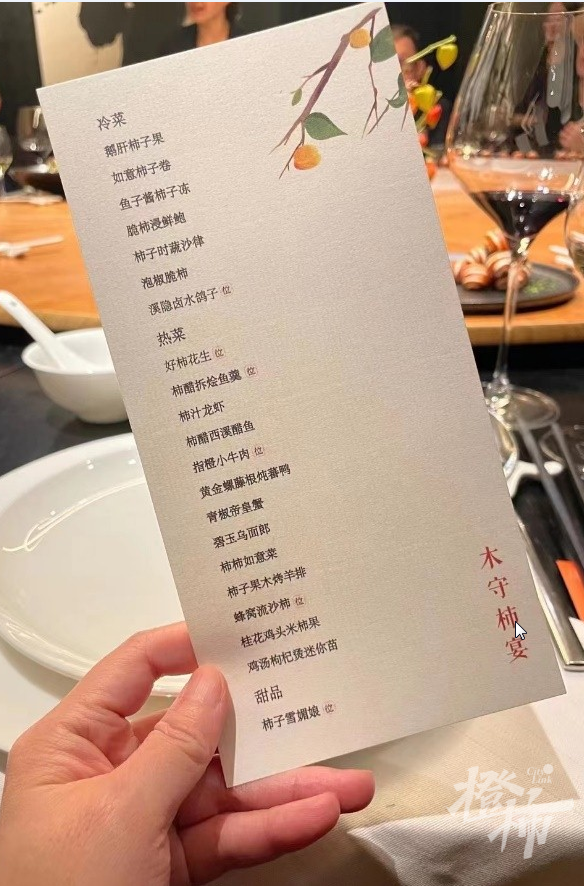 冷菜
鹅肝柿子果
如意柿子卷
鱼子酱柿子冻
脆柿浸鲜鲍
柿子时蔬沙律
泡椒脆柿
溪隐卤水鸽子 位
热菜
好柿花生 位
柿醋拆烩鱼羹 位
柿汁龙虾
柿醋西溪醋鱼
指橙小牛肉 位
黄金螺藤根炖蕃鸭
青椒帝皇蟹
碧玉乌面郎
柿柿如意菜
柿子果木烤羊排
蜂窝流沙柿 位
桂花鸡头米柿果
鸡汤枸杞煲迷你苗
甜品
柿子雪媚娘 位
木守柿宴
橙柿
City Link